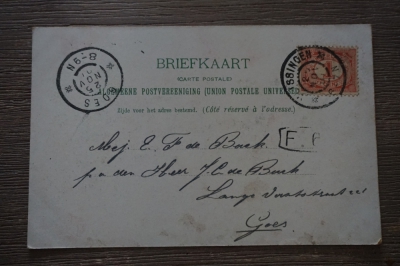 BRIEFKAART
(CARTE POSTALE)
ALGEMEENE POSTVEREENIGING (UNION POSTALE UNIVERSELLE)
Zijde voor het adres bestemd. (Côté réservé à l'adresse.)
8-9N
NOV
GOES
SSINGEN
Mej. E. F de Buck
p/a den Heer J. C. de Buck
Lange
Goes